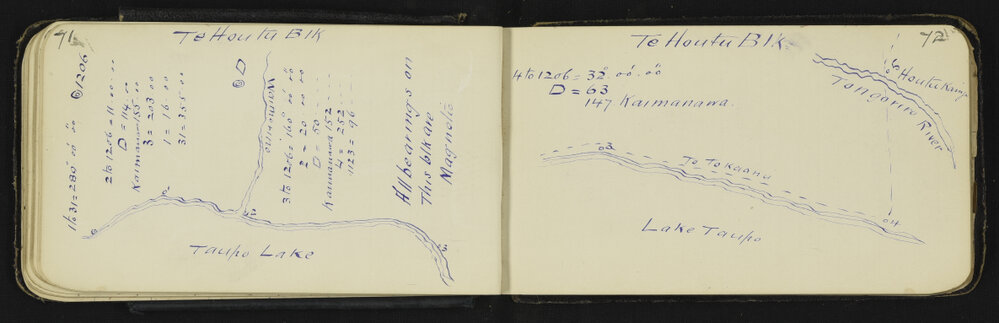 71
Te Houtu Blk
1 to 31 = 280° 00' 00"
⊙ 1206
2 to 1206 = 11 . 00 . 00
D = 114 . 00
Kaimanawa 155 . 00
3 = 203 00
1 = 16 00
31 = 355 . 00
2
D
Waimarino
3 to 1206 = 160° 00' 00"
2 = 20 00 00
D = 50
Kaimanawa 152
4 = 252
1123 = 96
All bearings on
This blk are
Magnetic
3
Taupo Lake
72
Te Houtu Blk
4 to 1206 = 32° . 00' . 00"
D = 63
147 Kaimanawa.
Houtu Kainga
Tongariro River
3
To Tokaanu
4
Lake Taupo